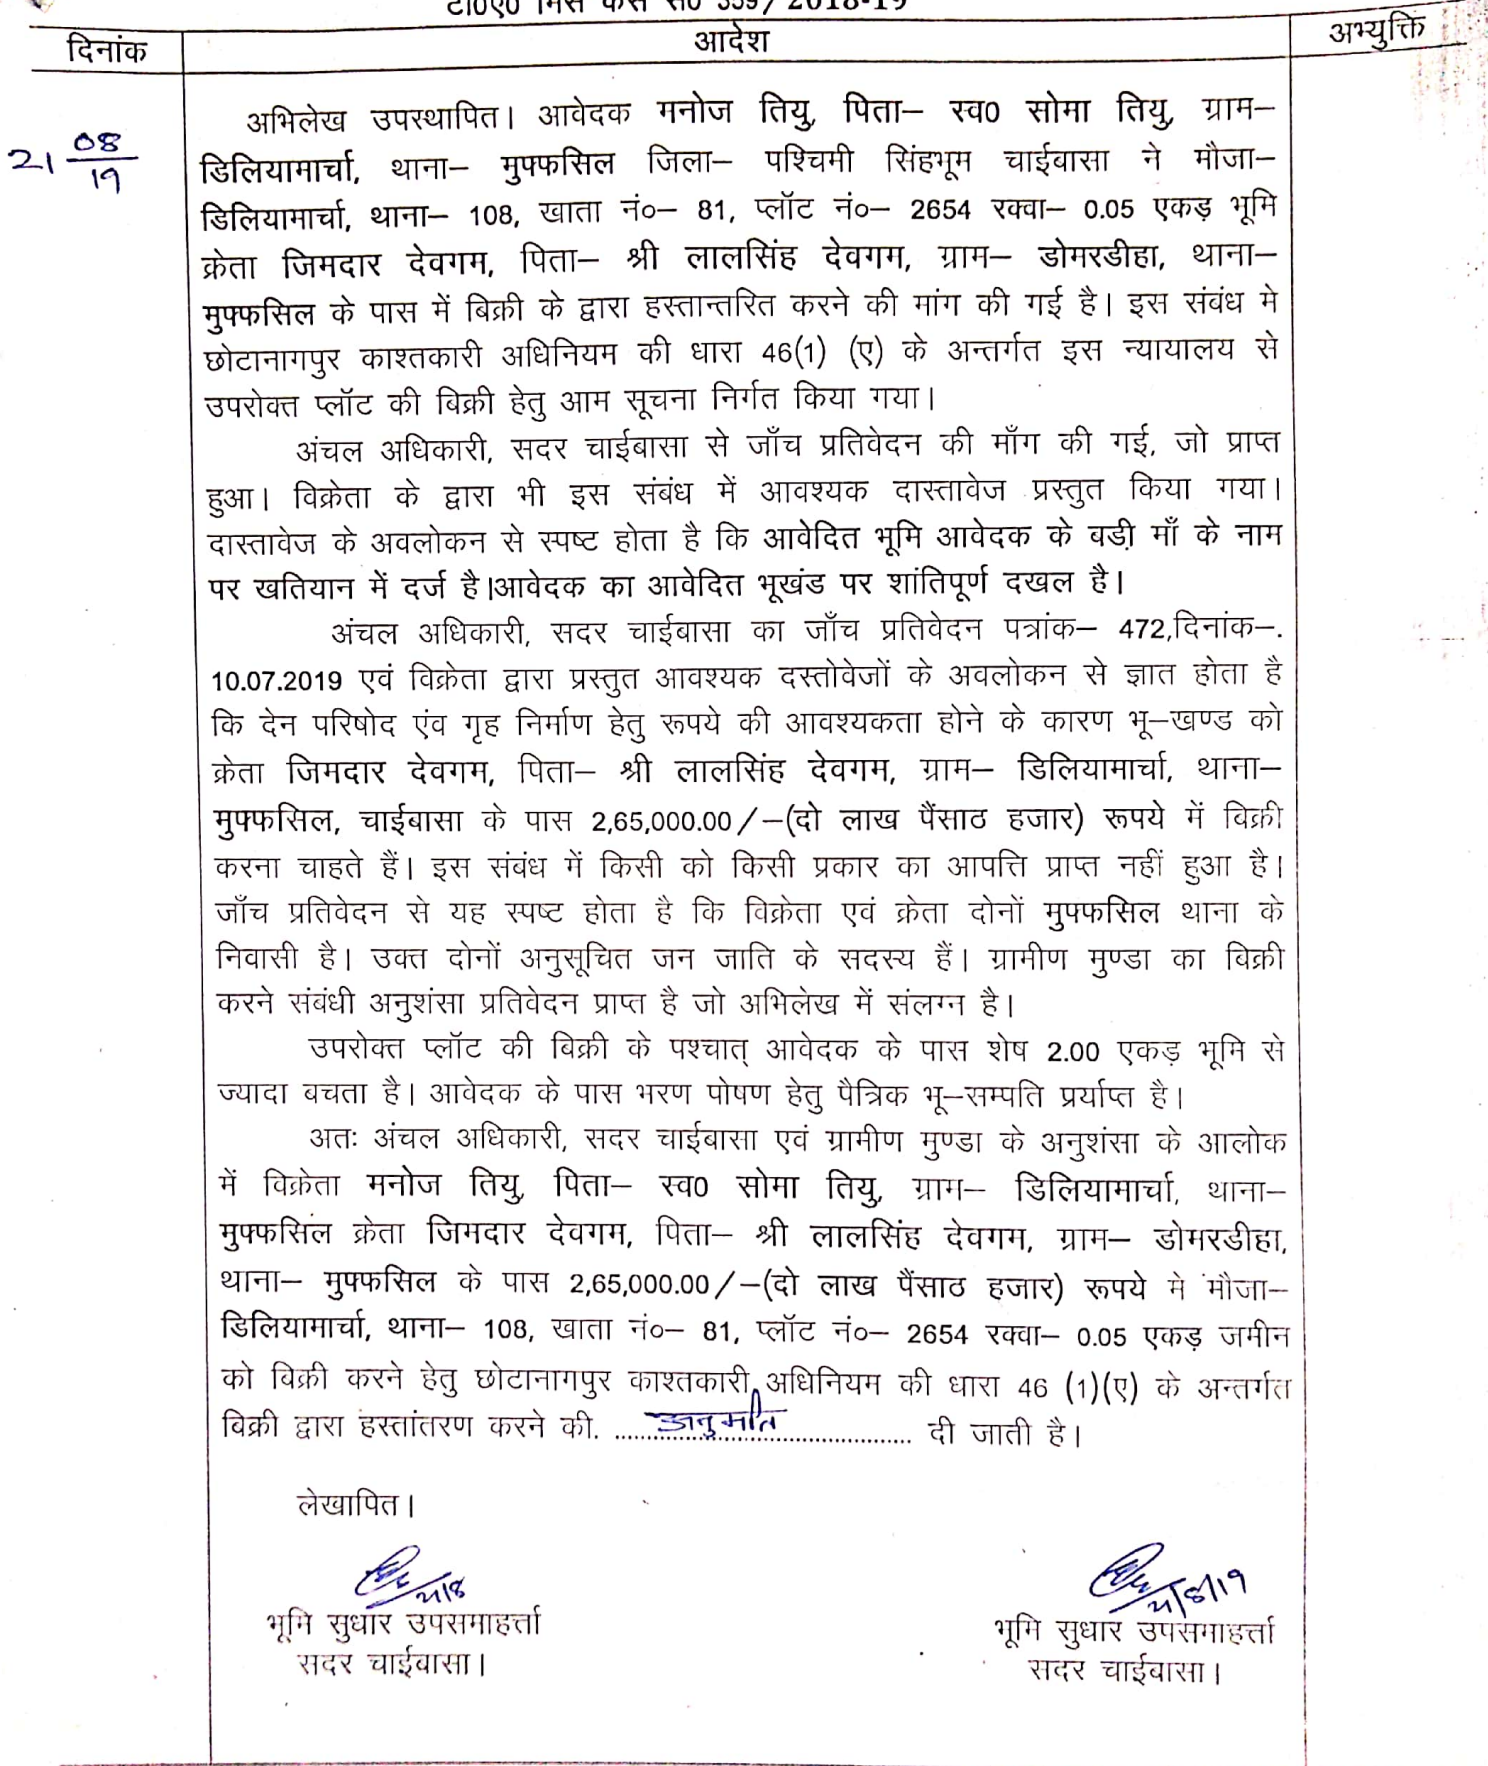 टी0ए0 मिस केस सं0 559/2018-19
दिनांक आदेश अभ्युक्ति
21 08/19
अभिलेख उपस्थापित। आवेदक मनोज तियु, पिता– स्व0 सोमा तियु, ग्राम–
डिलियामार्चा, थाना– मुफ्फसिल जिला– पश्चिमी सिंहभूम चाईबासा ने मौजा–
डिलियामार्चा, थाना– 108, खाता नं०– 81, प्लॉट नं०– 2654 रक्वा– 0.05 एकड़ भूमि
क्रेता जिमदार देवगम, पिता– श्री लालसिंह देवगम, ग्राम– डोमरडीहा, थाना–
मुफ्फसिल के पास में बिक्री के द्वारा हस्तान्तरित करने की मांग की गई है। इस संबंध मे
छोटानागपुर काश्तकारी अधिनियम की धारा 46(1) (ए) के अन्तर्गत इस न्यायालय से
उपरोक्त प्लॉट की बिक्री हेतु आम सूचना निर्गत किया गया।
अंचल अधिकारी, सदर चाईबासा से जाँच प्रतिवेदन की माँग की गई, जो प्राप्त
हुआ। विक्रेता के द्वारा भी इस संबंध में आवश्यक दास्तावेज प्रस्तुत किया गया।
दास्तावेज के अवलोकन से स्पष्ट होता है कि आवेदित भूमि आवेदक के बडी़ माँ के नाम
पर खतियान में दर्ज है।आवेदक का आवेदित भूखंड पर शांतिपूर्ण दखल है।
अंचल अधिकारी, सदर चाईबासा का जाँच प्रतिवेदन पत्रांक– 472,दिनांक–.
10.07.2019 एवं विक्रेता द्वारा प्रस्तुत आवश्यक दस्तोवेजों के अवलोकन से ज्ञात होता है
कि देन परिषोद एंव गृह निर्माण हेतु रूपये की आवश्यकता होने के कारण भू–खण्ड को
क्रेता जिमदार देवगम, पिता– श्री लालसिंह देवगम, ग्राम– डिलियामार्चा, थाना–
मुफ्फसिल, चाईबासा के पास 2,65,000.00/–(दो लाख पैंसाठ हजार) रूपये में बिक्री
करना चाहते हैं। इस संबंध में किसी को किसी प्रकार का आपत्ति प्राप्त नहीं हुआ है।
जाँच प्रतिवेदन से यह स्पष्ट होता है कि विक्रेता एवं क्रेता दोनों मुफ्फसिल थाना के
निवासी है। उक्त दोनों अनुसूचित जन जाति के सदस्य हैं। ग्रामीण मुण्डा का बिक्री
करने संबंधी अनुशंसा प्रतिवेदन प्राप्त है जो अभिलेख में संलग्न है।
उपरोक्त प्लॉट की बिक्री के पश्चात् आवेदक के पास शेष 2.00 एकड़ भूमि से
ज्यादा बचता है। आवेदक के पास भरण पोषण हेतु पैत्रिक भू–सम्पति प्रर्याप्त है।
अतः अंचल अधिकारी, सदर चाईबासा एवं ग्रामीण मुण्डा के अनुशंसा के आलोक
में विक्रेता मनोज तियु, पिता– स्व0 सोमा तियु, ग्राम– डिलियामार्चा, थाना–
मुफ्फसिल क्रेता जिमदार देवगम, पिता– श्री लालसिंह देवगम, ग्राम– डोमरडीहा,
थाना– मुफ्फसिल के पास 2,65,000.00/–(दो लाख पैंसाठ हजार) रूपये मे मौजा–
डिलियामार्चा, थाना– 108, खाता नं०– 81, प्लॉट नं०– 2654 रक्वा– 0.05 एकड़ जमीन
को बिक्री करने हेतु छोटानागपुर काश्तकारी अधिनियम की धारा 46 (1)(ए) के अन्तर्गत
बिक्री द्वारा हस्तांतरण करने की. अनुमति दी जाती है।
लेखापित।
21/8 21/8/19
भूमि सुधार उपसमाहर्त्ता भूमि सुधार उपसमाहर्त्ता
सदर चाईबासा। सदर चाईबासा।